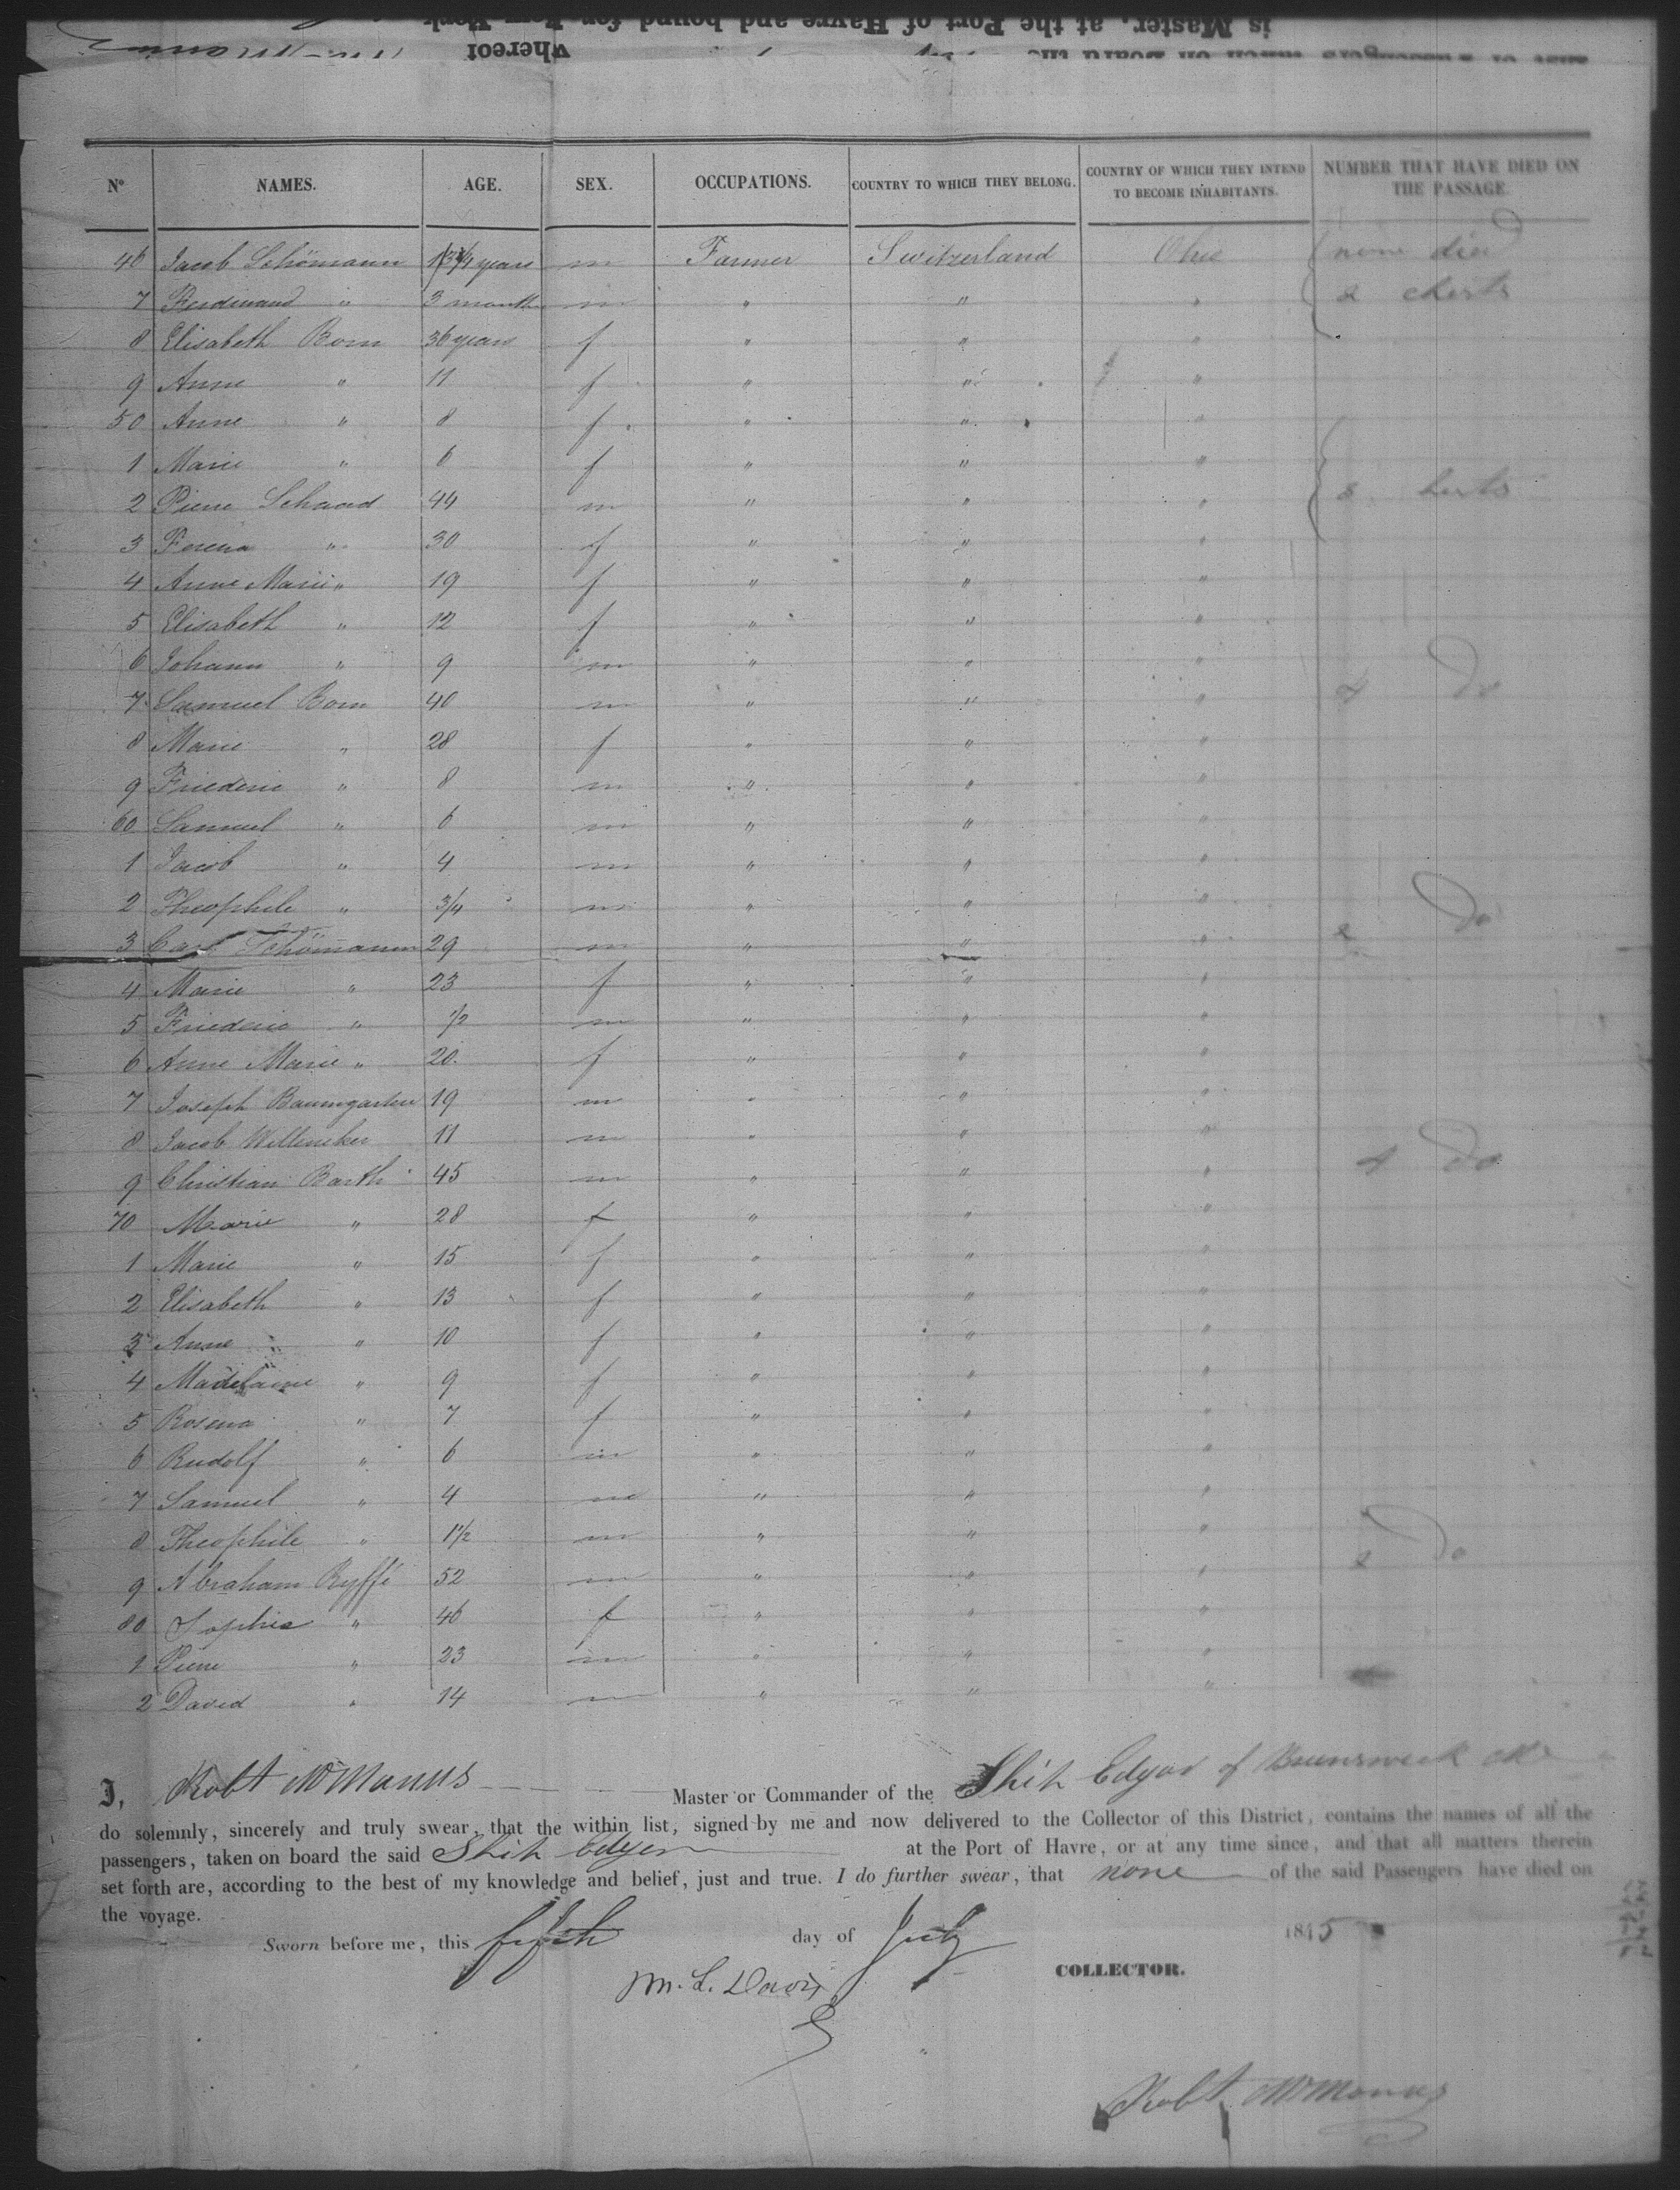 is Master, at the Port of Havre and bound for New York
whereof
Nº NAMES. AGE. SEX. OCCUPATIONS. COUNTRY TO WHICH THEY BELONG. COUNTRY OF WHICH THEY INTEND TO BECOME INHABITANTS. NUMBER THAT HAVE DIED ON THE PASSAGE.
46 Jacob Schömann 1 3/4 years m Farmer Switzerland Ohio none died
7 Ferdinand " 3 months m " " " 2 chests
8 Elisabeth Born 36 years f " " "
9 Anne " 11 f " " "
50 Anne " 8 f " " "
1 Marie " 6 f " " "
2 Pierre Schaad 44 m " " "
3 Ferena " 30 f " " "
4 Anne Marie " 19 f " " "
5 Elisabeth " 12 f " " "
6 Johann " 9 m " " "
7 Samuel Born 40 m " " " do
8 Marie " 28 f " " "
9 Friederic " 8 m " " "
60 Samuel " 6 m " " "
1 Jacob " 4 m " " "
2 Theophile " 3/4 m " " "
3 Carl Schömann 29 m " " " 2 do
4 Marie " 23 f " " "
5 Friederic " 1/2 m " " "
6 Anne Marie " 20 f " " "
7 Joseph Baumgarten 19 m " " "
8 Jacob 11 m " " "
9 Christian Barth 45 m " " " do
70 Marie " 28 f " " "
1 Marie " 15 f " " "
2 Elisabeth " 13 f " " "
3 Anne " 10 f " " "
4 Madelaine " 9 f " " "
5 Rosena " 7 f " " "
6 Rudolf " 6 m " " "
7 Samuel " 4 m " " "
8 Theophile " 1 1/2 m " " "
9 Abraham Ryffé 52 m " " " 2 do
80 Sophie " 46 f " " "
1 Pierre " 23 m " " "
2 David " 14 m " " "
I, Robt McManus Master or Commander of the Ship Edgar of Brunswick Me
do solemnly, sincerely and truly swear, that the within list, signed by me and now delivered to the Collector of this District, contains the names of all the
passengers, taken on board the said Ship Edgar at the Port of Havre, or at any time since, and that all matters therein
set forth are, according to the best of my knowledge and belief, just and true. I do further swear, that none of the said Passengers have died on
the voyage.
Sworn before me, this fifth day of July 1845
M. L. Davis COLLECTOR.
Robt McManus